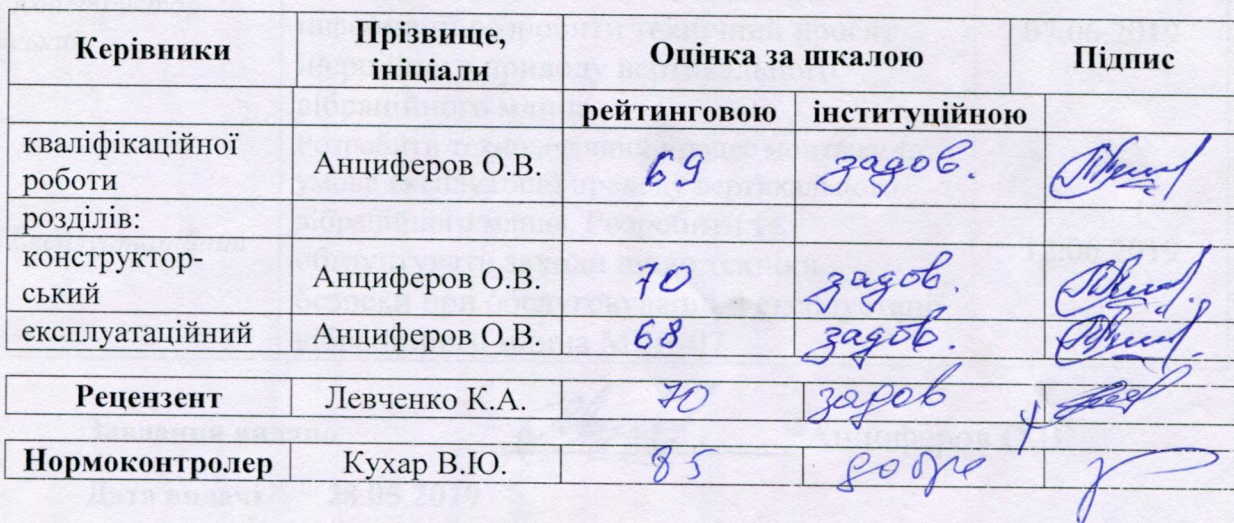 Керівники Прізвище, ініціали Оцінка за шкалою Підпис
рейтинговою інституційною
кваліфікаційної роботи Анциферов О.В. 69 задов.
розділів:
конструктор-ський Анциферов О.В. 70 задов.
експлуатаційний Анциферов О.В. 68 задов.
Рецензент Левченко К.А. 70 задов
Нормоконтролер Кухар В.Ю. 85 добре